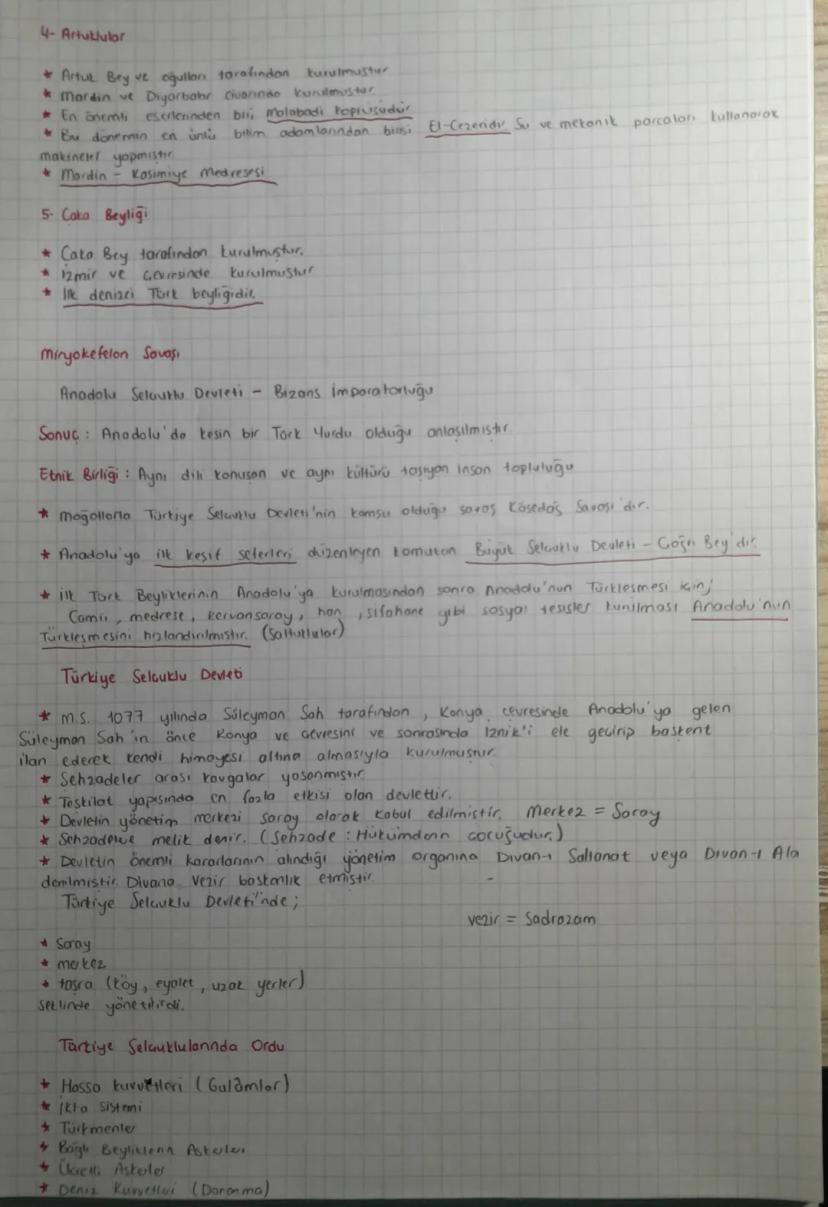 4- Artuklular
* Artuk Bey ve oğulları tarafından kurulmuştur
* Mardin ve Diyarbakır civarında kurulmuştur.
* En önemli eserlerinden biri Malabadi Köprüsüdür
* Bu dönemin en ünlü bilim adamlarından birisi El-Cezeridir Su ve mekanik parçaları kullanarak
makineler yapmıştır.
* Mardin - Kasımiye Medresesi
5- Çaka Beyliği
* Çaka Bey tarafından kurulmuştur.
* İzmir ve çevresinde kurulmuştur
* İlk denizci Türk beyliğidir.
Miryokefelon Savaşı
Anadolu Selçuklu Devleti - Bizans İmparatorluğu
Sonuç : Anadolu'da kesin bir Türk Yurdu olduğu anlaşılmıştır
Etnik Birliği : Aynı dili konuşan ve aynı kültürü taşıyan insan topluluğu
* Moğollarla Türkiye Selçuklu Devleti'nin komşu olduğu savaş Kösedağ Savaşı'dır.
* Anadolu'ya ilk keşif seferleri düzenleyen komutan Büyük Selçuklu Devleti - Çağrı Bey'dir.
* İlk Türk Beyliklerinin Anadolu'ya kurulmasından sonra Anadolu'nun Türkleşmesi için;
Camii, medrese, kervansaray, han, şifahane gibi sosyal tesisler kurulması Anadolu'nun
Türkleşmesini hızlandırılmıştır. (Saltuklular)
Türkiye Selçuklu Devleti
* M.S. 1077 yılında Süleyman Şah tarafından, Konya çevresinde Anadolu'ya gelen
Süleyman Şah'ın önce Konya ve çevresini ve sonrasında İznik'i ele geçirip başkent
ilan ederek kendi himayesi altına almasıyla kurulmuştur.
* Şehzadeler arası kavgalar yaşanmıştır
* Teşkilat yapısında en fazla etkisi olan devlettir.
* Devletin yönetim merkezi saray olarak kabul edilmiştir. Merkez = Saray
* Şehzadeye melik denir. (Şehzade : Hükümdarın çocuğudur.)
* Devletin önemli kararlarının alındığı yönetim organına Divan-ı Saltanat veya Divan-ı Ala
denilmiştir. Divana Vezir başkanlık etmiştir.
Türkiye Selçuklu Devleti'nde;
vezir = Sadrazam
* Saray
* merkez
* taşra (köy, eyalet, uzak yerler)
şeklinde yönetilirdi.
Türkiye Selçuklularında Ordu
* Hassa kuvvetleri (Gulâmlar)
* İkta sistemi
* Türkmenler
* Bağlı Beyliklerin Askerleri
* Ücretli Askerler
* Deniz Kuvvetleri (Donanma)